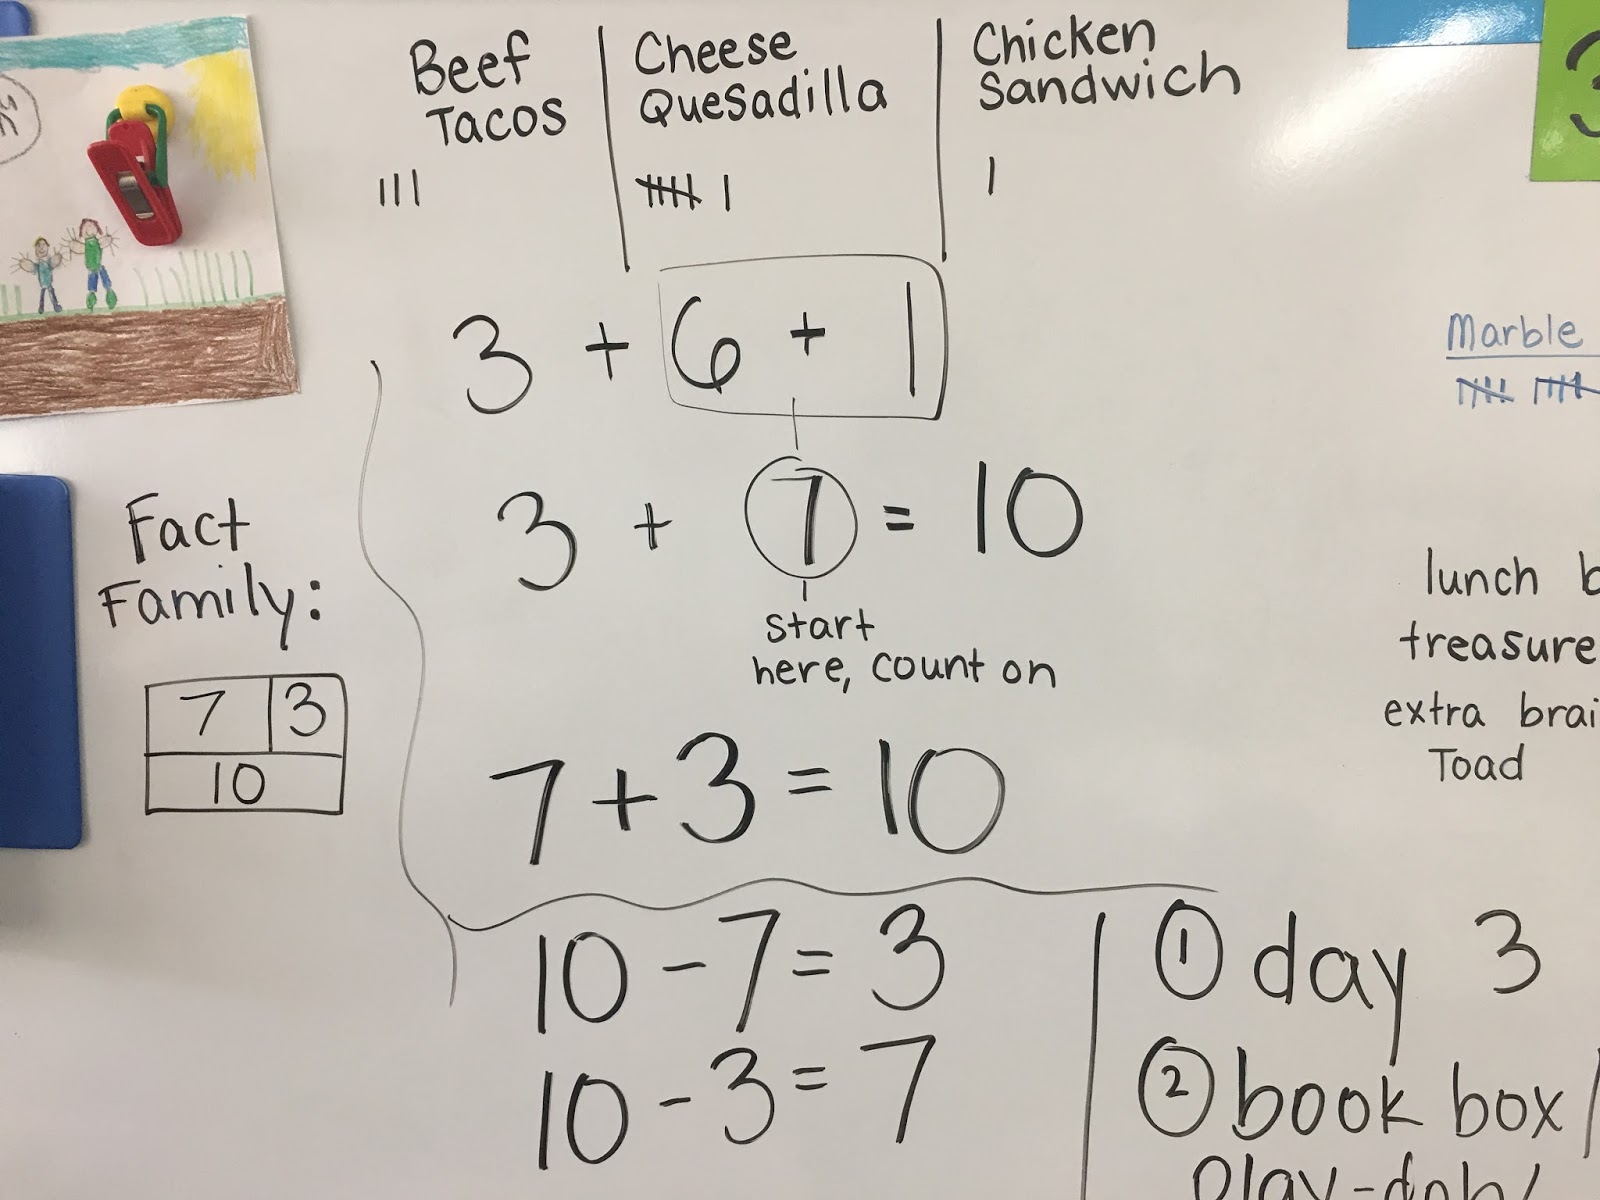 Beef
Tacos
Cheese
Quesadilla
Chicken
Sandwich
3 + 6 + 1
3 + 7 = 10
start
here, count on
7 + 3 = 10
Fact
Family:
7 3
10
10 - 7 = 3
10 - 3 = 7
Marble
lunch
treasure
extra
Toad
① day 3
② book box
3